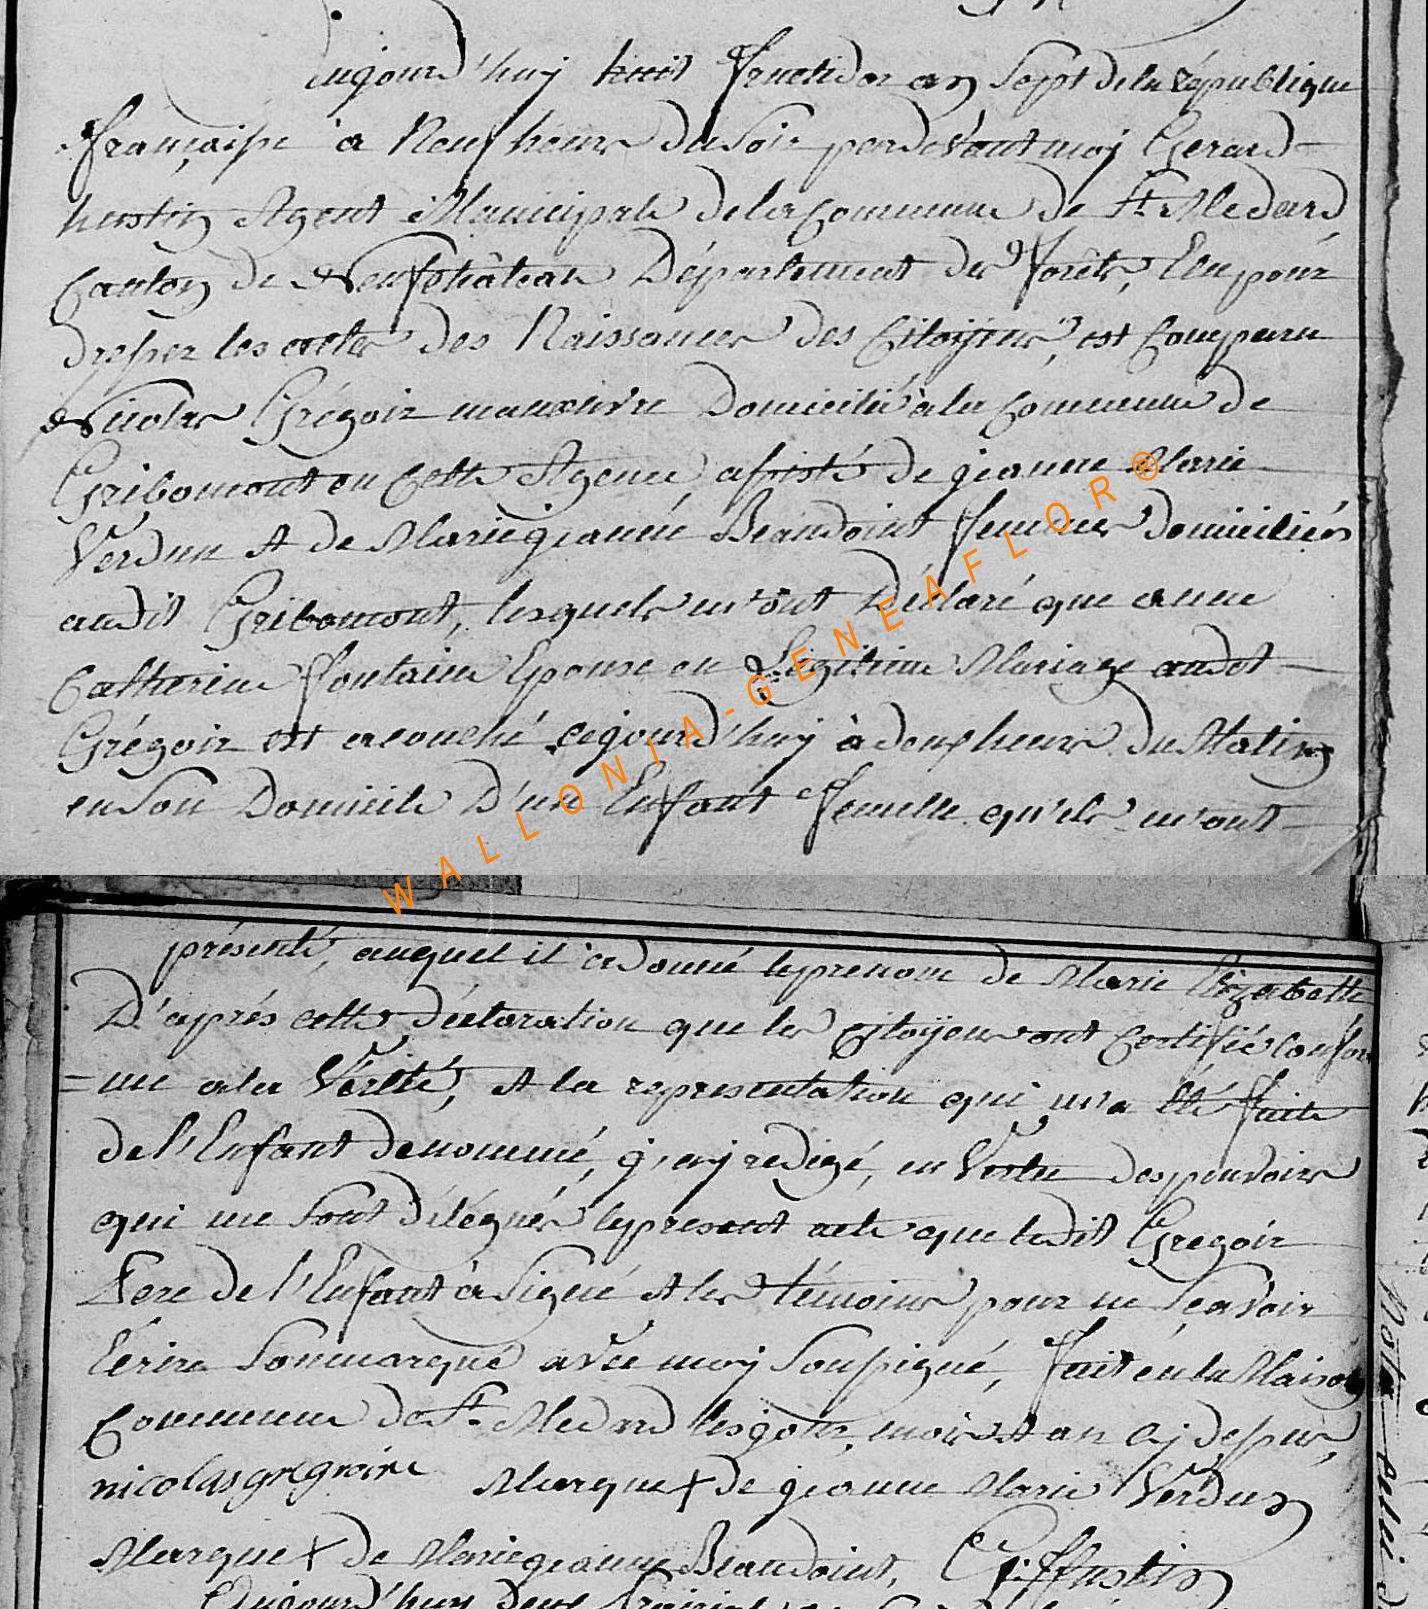 aujourd'huy huit fructidor an Sept de la République
française à Neuf heures du Soir pardevant moy Gerard
hustin Agent Municipale de la Commune de St. Medard
Canton de Neufchâteau Département des forêts, Elu pour
dresser les actes des Naissances des Citoyens, est Comparu
Nicolas Grégoir manoeuvre Domicilié à la Commune de
Gribomont en Cette Agence, assisté de jeanne Marie
Verdun et de Marie jeanne Beaudoint femmes domiciliés
audit Gribomont, lesquels m'ont Déclaré que anne
Catherine fontaine Epouse en Légitime Mariage audt
Grégoir est acouché cejourd'huy à deux heures du Matin
en Son Domicile D'un Enfant femelle qu'ils m'ont
WALLONIA-GENEAFLOR®
présenté, auquel il à donné le prenom de Marie Elizabette
D'après cette déclaration que les Citoyens ont Certifié Confor
=me a la Vérité, et la representation qui m'a été faite
de l'Enfant denommé, j'ay redigé, en Vertu des pouvoirs
qui me Sont délégués le present acte que ledit Gregoir
Pere de l'Enfant à Signé et les témoins pour ne Scavoir
Ecrire Sont marqué avec moy Soussigné, fait en la Maison
Commune de St. Medard les jour, mois et an cy dessus,
nicolas gregroire Marque + de jeanne Marie Verdun
Marque + de Marie jeanne Beaudoint, G: Hustin
Aujourd'huy deux
Nota celui